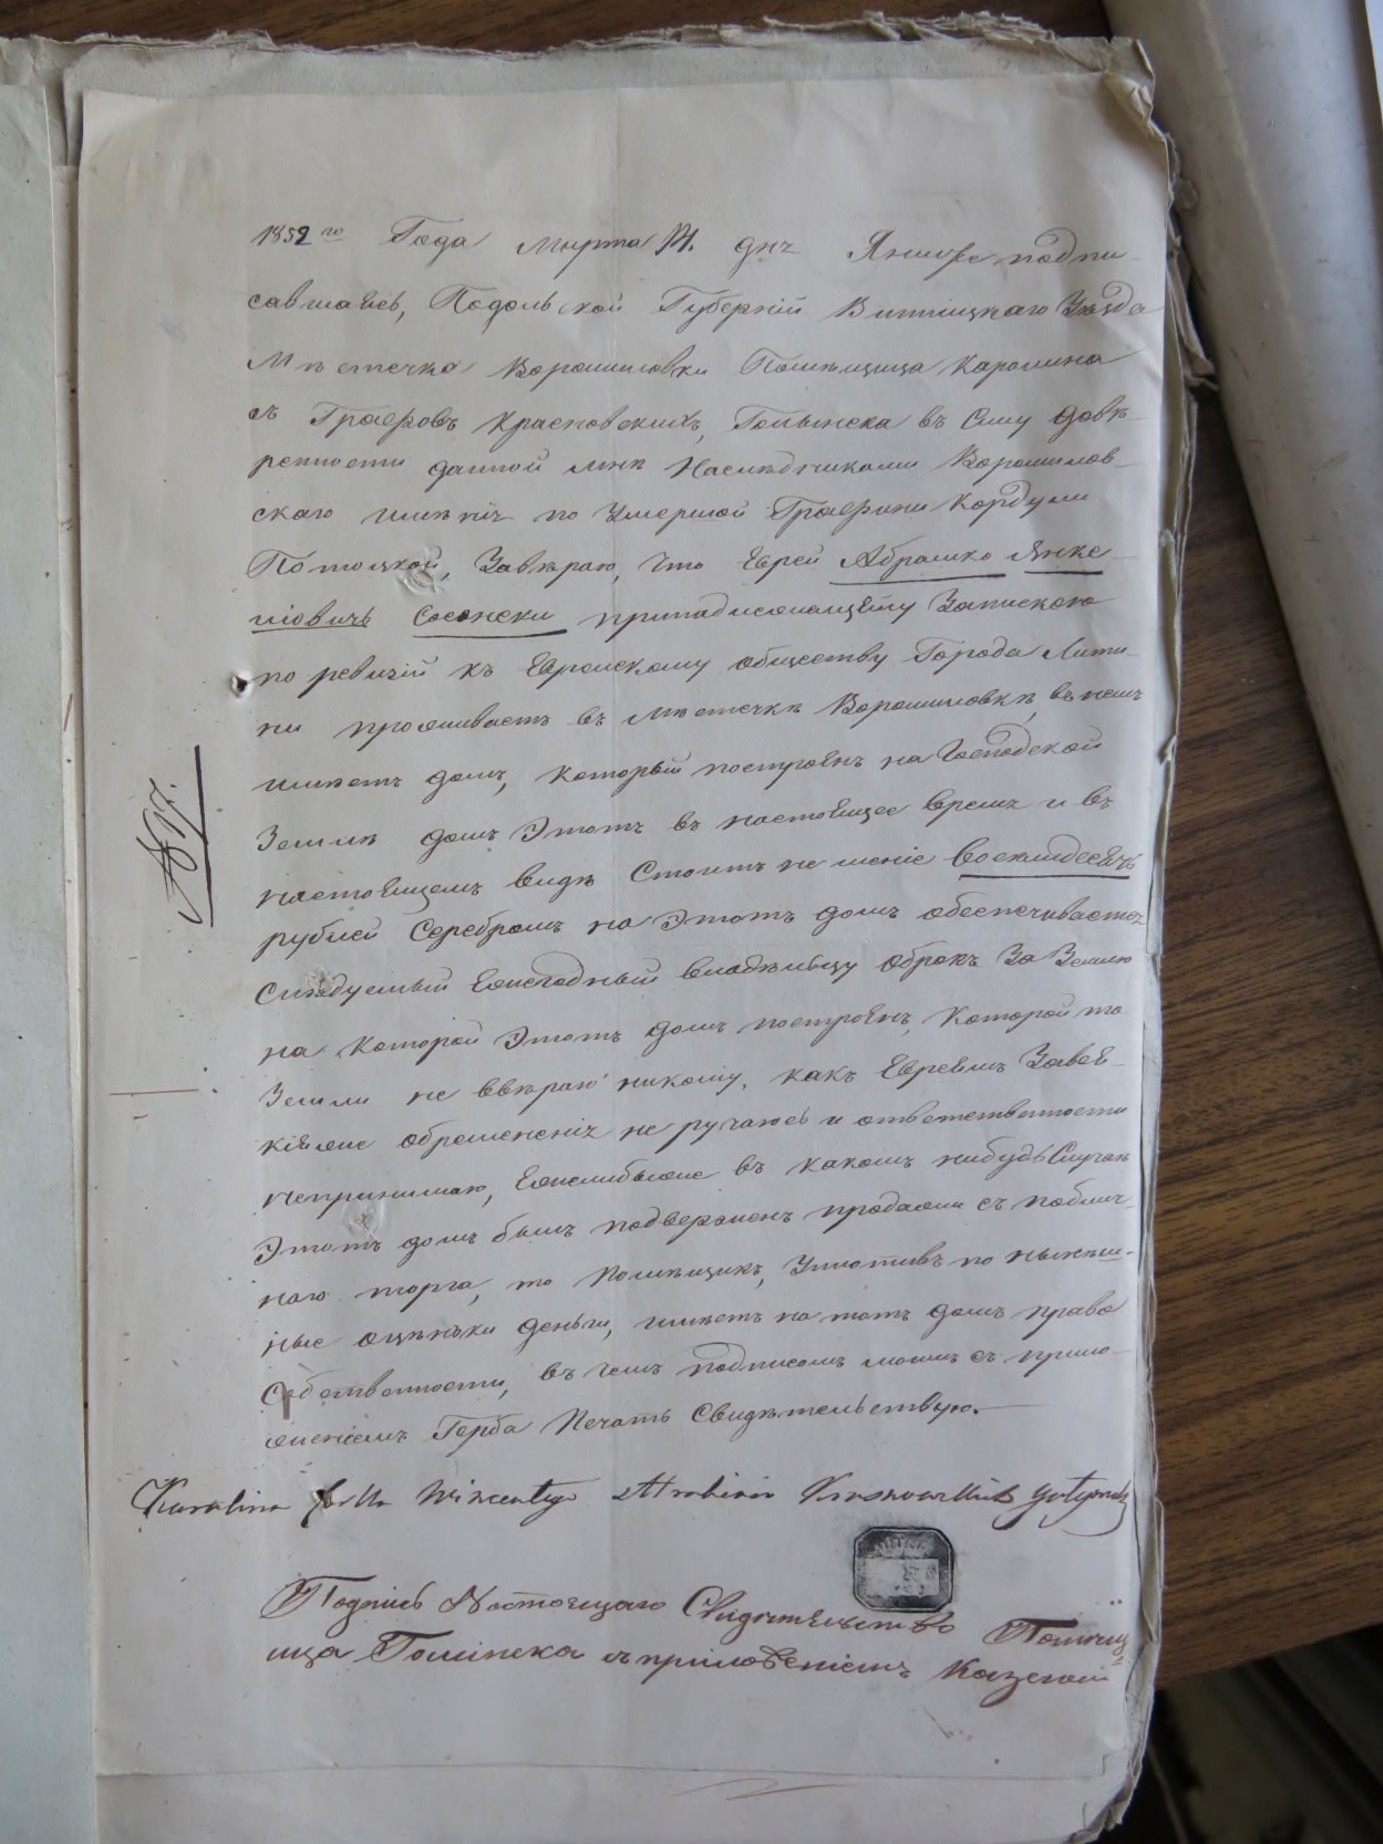 1852 го Года Марта 14. дня Я нижеподпи-
савшаясь, Подольской Губерніи Винницкаго Уѣзда
Мѣстечка Ворошиловки Помѣщица Каролина
съ Графовъ Красновскихъ, Голынска въ Силу довѣ-
ренности данной мнѣ Наслѣдниками Ворошилов-
скаго имѣнія по Умершой Графини Кордули
Потоцкой, Завѣраю, что Еврей Абрашко Янке-
ліовичъ Сосонски принадлежащему Запискою
по ревизіи къ Еврейскому обществу Города Лити-
ни проживаетъ въ мѣстечкѣ Ворошиловкѣ, въ немъ
имѣетъ домъ, который построенъ на Господской
Земли домъ Этотъ въ настоящее время и въ
настоящемъ видѣ Стоитъ не меніе восемдесятъ
рублей Серебромъ на Этотъ домъ обеспечивается
Слѣдуемый Ежегодный владѣльцу оброкъ За Землю
на которой Этотъ домъ построенъ, Которой то
Земли не ввѣраю никому, какъ Евреямъ За вся-
кіяже обремененія не ручаюсь и ответственности
непринимаю, Ежелибыже въ какомъ нибудь Случаѣ
Этотъ домъ былъ подверженъ продажи съ публич-
наго торга, то Помѣщикъ, Уплотивъ по нынѣш-
ные оцѣнки деньги, имѣетъ на тотъ домъ право
Собственности, въ чемъ подписомъ моимъ съ прило-
женіемъ Герба Печать Свидѣтельствую.
Karolina Wincentego Hrabiow
Подпись Настоящаго Свидѣтельство Помѣщ
ица Голинска съ приложеніемъ Казеной